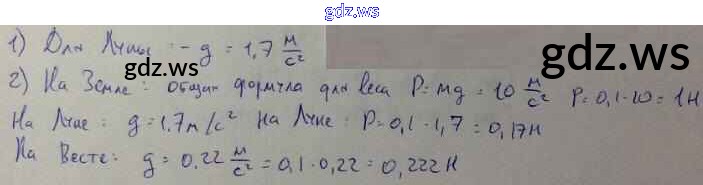 gdz.ws
1) Для Луны :- g = 1,7 м/с²
gdz.ws
gdz.ws
2) На Земле: общая формула для веса P=mg = 10 м/с² P=0,1·10=1Н
На Луне: g=1.7м/с² На Луне: P=0,1·1,7=0,17Н
На Весте: g=0.22 м/с² =0,1·0,22=0,222Н